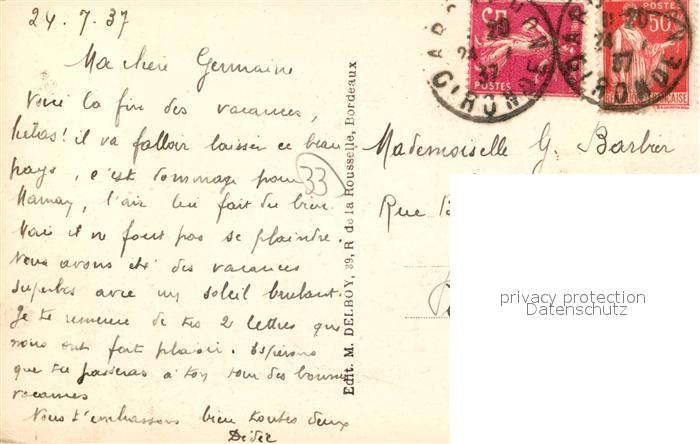 24.7.37
Ma chère Germaine
Voici la fin des vacances,
hélas! il va falloir laisser ce beau
pays, c'est dommage pour
Mamay, l'air lui fait du bien.
Mais il ne faut pas se plaindre.
Nous avons été des vacances
superbes avec un soleil brulant.
Je te remercie de tes 2 lettres qui
nous ont fait plaisir. Espérons
que tu passeras à ton tour des bonnes
vacances
Nous t'embrassons bien toutes deux
Dédée
33
Edit. M. DELBOY, 39, R de la Rousselle, Bordeaux
POSTES
GIRONDE
24
37
20
POSTES
50c
20
24
37
GIRONDE
Mademoiselle G. Barbier
Rue B
privacy protection
Datenschutz